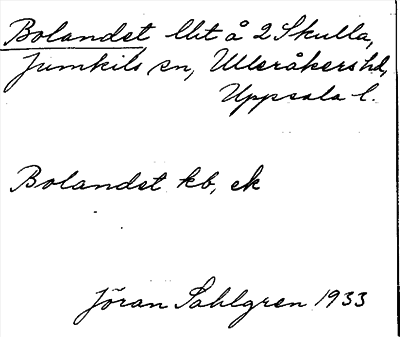 Bolandet lht å 2 Skulla,
Jumkils sn, Ulleråkers hd,
Uppsala l.
Bolandet kb, ek
Jöran Sahlgren 1933